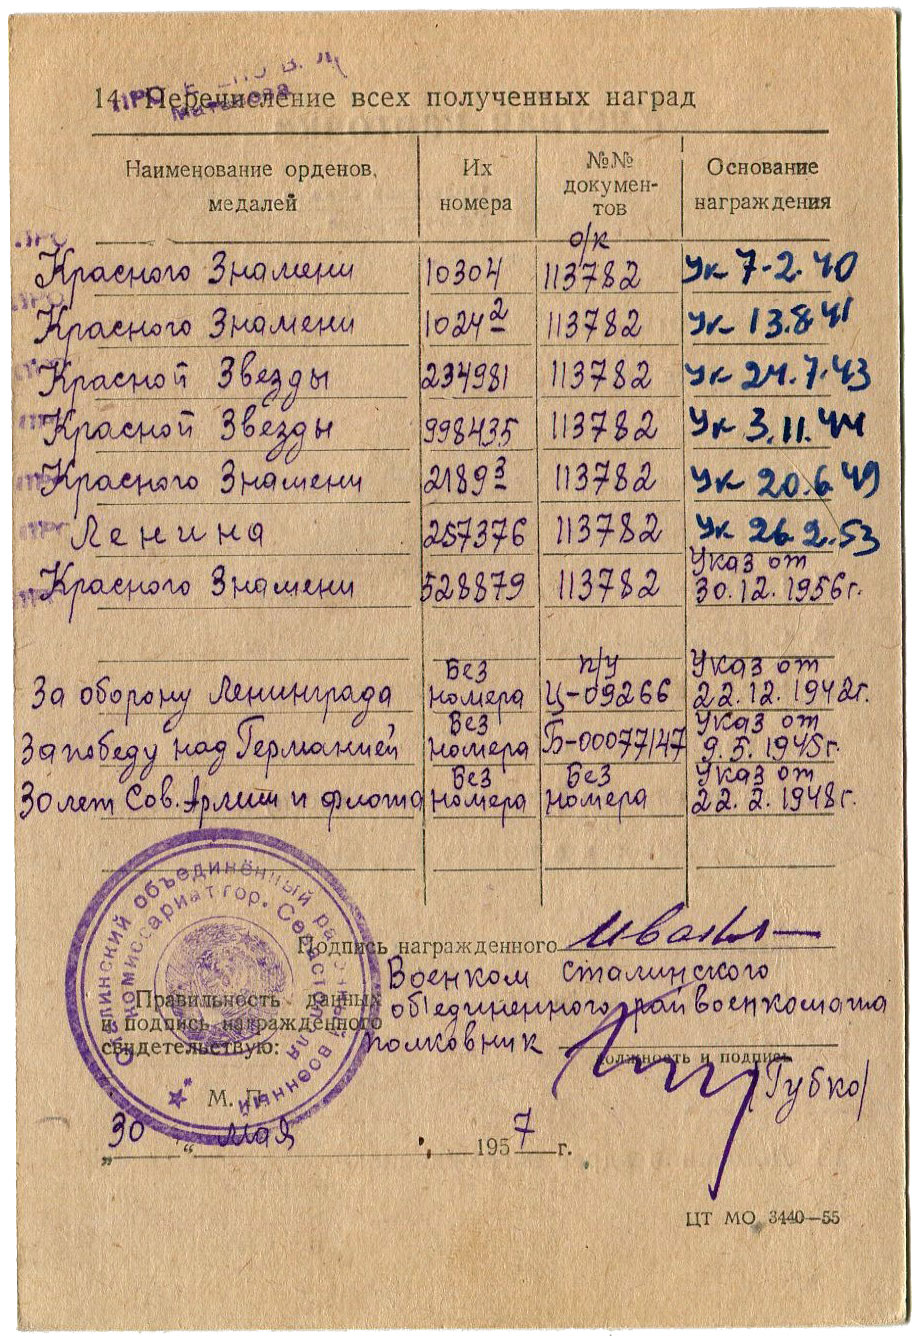 14. Перечисление всех полученных наград
Наименование орденов, медалей Их номера №№ документов Основание награждения
о/к
Красного Знамени 10304 113782 Ук 7-2.40
Красного Знамени 1024 2 113782 Ук 13.8.41
Красной Звезды 234981 113782 Ук 24.7.43
Красной Звезды 998435 113782 Ук 3.11.44
Красного Знамени 2189 3 113782 Ук 20.6.49
Ленина 257376 113782 Ук 26.2.53
Красного Знамени 528879 113782 Указ от 30.12.1956г.
За оборону Ленинграда Без номера п/у Ц-09266 Указ от 22.12.1942г.
За победу над Германией Без номера Б-00077147 Указ от 9.5.1945г.
30 лет Сов. Армии и флота Без номера Без номера Указ от 22.2.1948г.
Подпись награжденного
Военком Сталинского
объединенного райвоенкомата
полковник
Правильность данных
и подпись награжденного
свидетельствую:
должность и подпись
/Губко/
М. П.
„30“ мая 1957 г.
ЦТ МО 3440—55
Сталинский объединённый районный военный
комиссариат гор. Севастополя